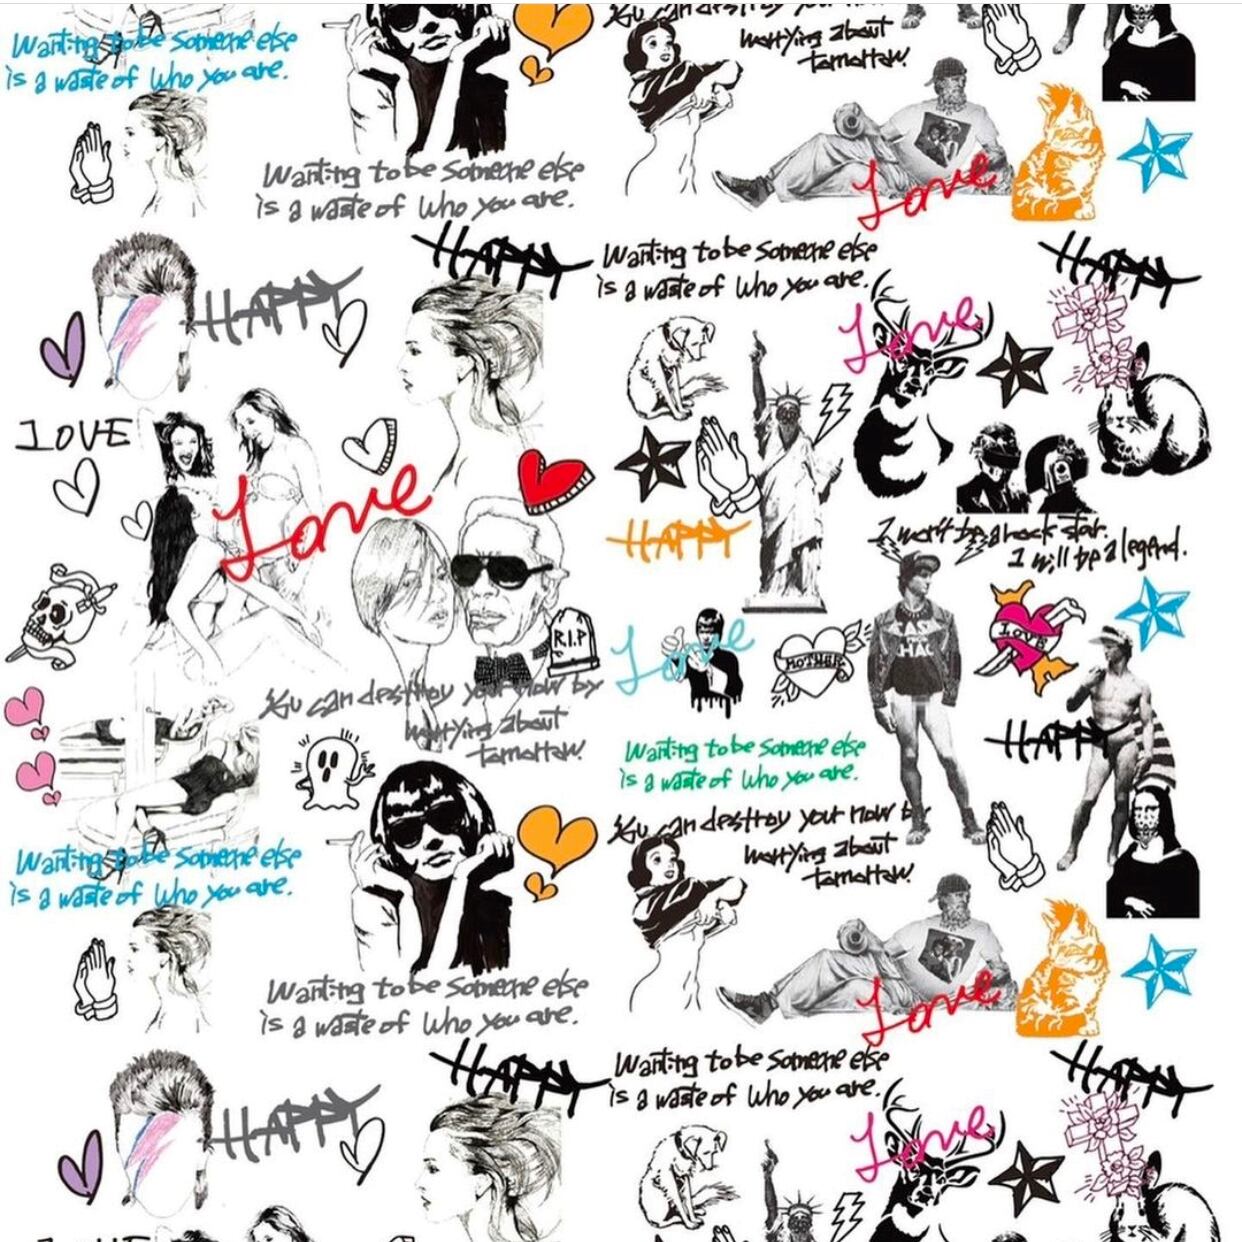 Wanting to be someone else
is a waste of who you are.
You can destroy your now by
worrying about
tomorrow.
Love
Wanting to be someone else
is a waste of who you are.
HAPPY
Wanting to be someone else
is a waste of who you are.
HAPPY
HAPPY
Love
LOVE
Love
HAPPY
I won't be a rock star.
I will be a legend.
R.I.P
Love
MOTHER
LOVE
You can destroy your now by
worrying about
tomorrow.
HAPPY
Wanting to be someone else
is a waste of who you are.
You can destroy your now by
worrying about
tomorrow.
Wanting to be someone else
is a waste of who you are.
Wanting to be someone else
is a waste of who you are.
Love
HAPPY
Wanting to be someone else
is a waste of who you are.
HAPPY
HAPPY
Love